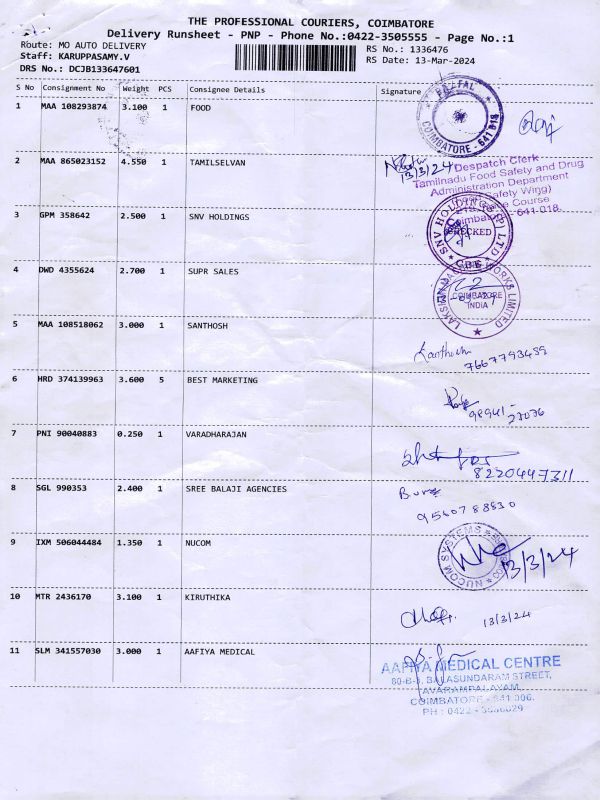 THE PROFESSIONAL COURIERS, COIMBATORE
Delivery Runsheet - PNP - Phone No.:0422-3505555 - Page No.:1
Route: MO AUTO DELIVERY
Staff: KARUPPASAMY.V
DRS No: DCJB133647601
RS No.: 1336476
RS Date: 13-Mar-2024
S No Consignment No Weight PCS Consignee Details Signature
1 MAA 108293874 3.100 1 FOOD
COIMBATORE - 641 018
2 MAA 865023152 4.550 1 TAMILSELVAN
13/3/24
Despatch Clerk
Tamilnadu Food Safety and Drug
Administration Department
Safety Wing)
Course
641 018.
3 GPM 358642 2.500 1 SNV HOLDINGS
SNV HOLDINGS (P) LTD
CBE
4 DWD 4355624 2.700 1 SUPR SALES
WORKS LIMITED
COIMBATORE
INDIA
5 MAA 108518062 3.000 1 SANTHOSH
Santhosh
7667793459
6 HRD 374139963 3.600 5 BEST MARKETING
7 PNI 90040883 0.250 1 VARADHARAJAN
8220447311
8 SGL 990353 2.400 1 SREE BALAJI AGENCIES
9 IXM 506044484 1.350 1 NUCOM
NUCOM SYSTEMS
13/3/24
10 MTR 2436170 3.100 1 KIRUTHIKA
13/3/24
11 SLM 341557030 3.000 1 AAFIYA MEDICAL
AAFIYA MEDICAL CENTRE
80-B-3, BALASUNDARAM STREET,
AVARAMPALAYAM,
COIMBATORE - 641 006.
PH : 0422 -